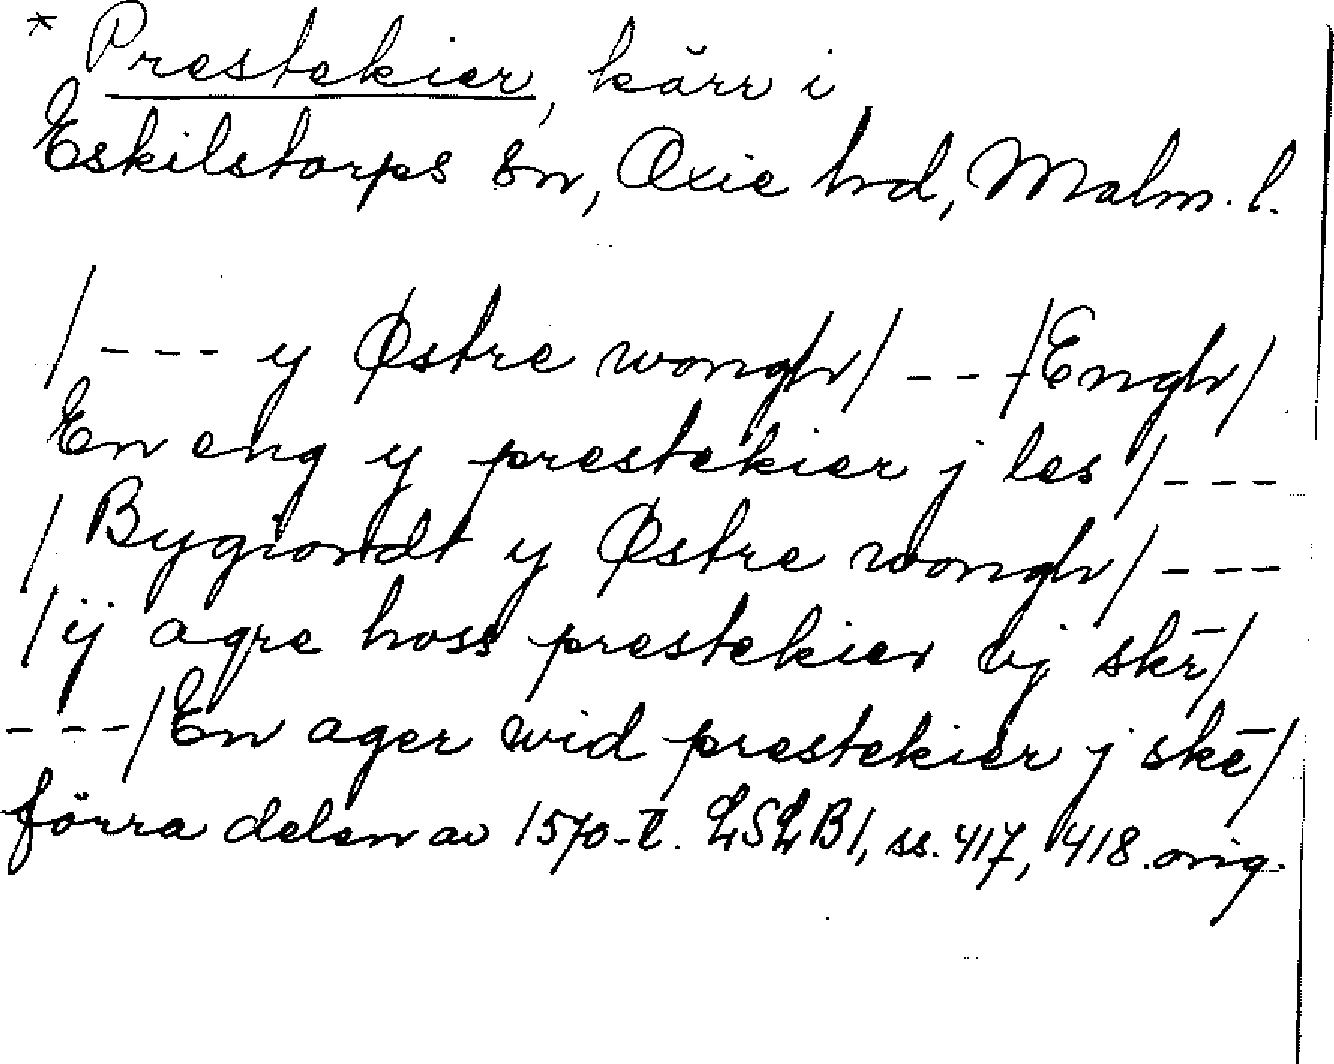 * Prestekier, kärr i
Eskilstorps sn, Oxie hd, Malm. l.
/--- y Østre wongh/---/Engh/
En eng y prestekier j les /---
/Bygiordt y Østre wongh/---
/ij agre hoss prestekier vj skē/
---/En ager wid prestekier j skē/
förra delen av 1570-t. LSLB1, ss. 417, 418. orig.